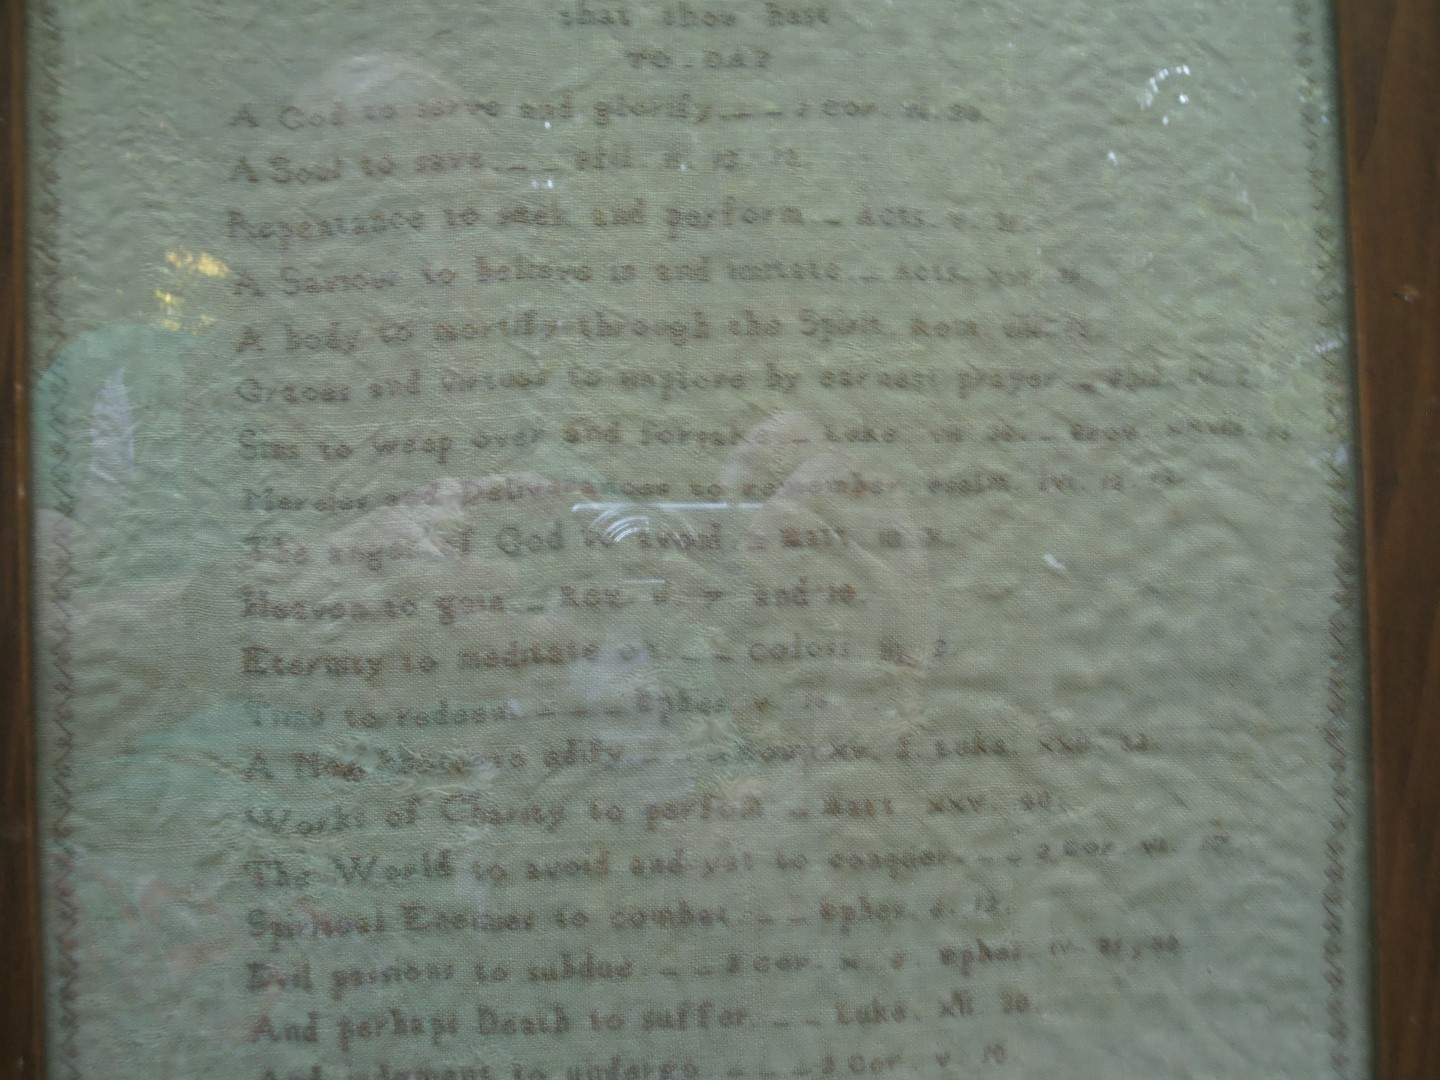 that thou hast
TO-DAY
A God to serve and glorify. _ _ 1 Cor. vi. 20.
A Soul to save. _ _ Phil. ii. 12.
Repentance to seek and perform _ Acts. v. 31.
A Saviour to believe in and imitate _ Acts. xvi.
A body to mortify through the Spirit. Rom. viii.
Graces and virtues to implore by earnest prayer _
Sins to weep over and forsake _ Luke. vii. _ Prov. xxviii.
Mercies and Deliverances to remember. Psalm.
The anger of God to avoid _ Matt. iii.
Heaven to gain _ Rev. and 10.
Eternity to meditate on _ _ Coloss. iii. 2.
Time to redeem _ _ _ Ephes. v. 16.
A to edify _ _ Luke. xxii.
Works of Charity to perform _ Matt. xxv. 40.
The World to avoid and yet to conquer. _ _ 2 Cor. vi. 17.
Spiritual Enemies to combat _ _ Ephes. 12.
Evil passions to subdue _ _ 2 Cor. x. 5. Ephes. iv.
And perhaps Death to suffer. _ _ Luke. xii. 20.
And judgment to undergo _ _ 2 Cor. v. 10.